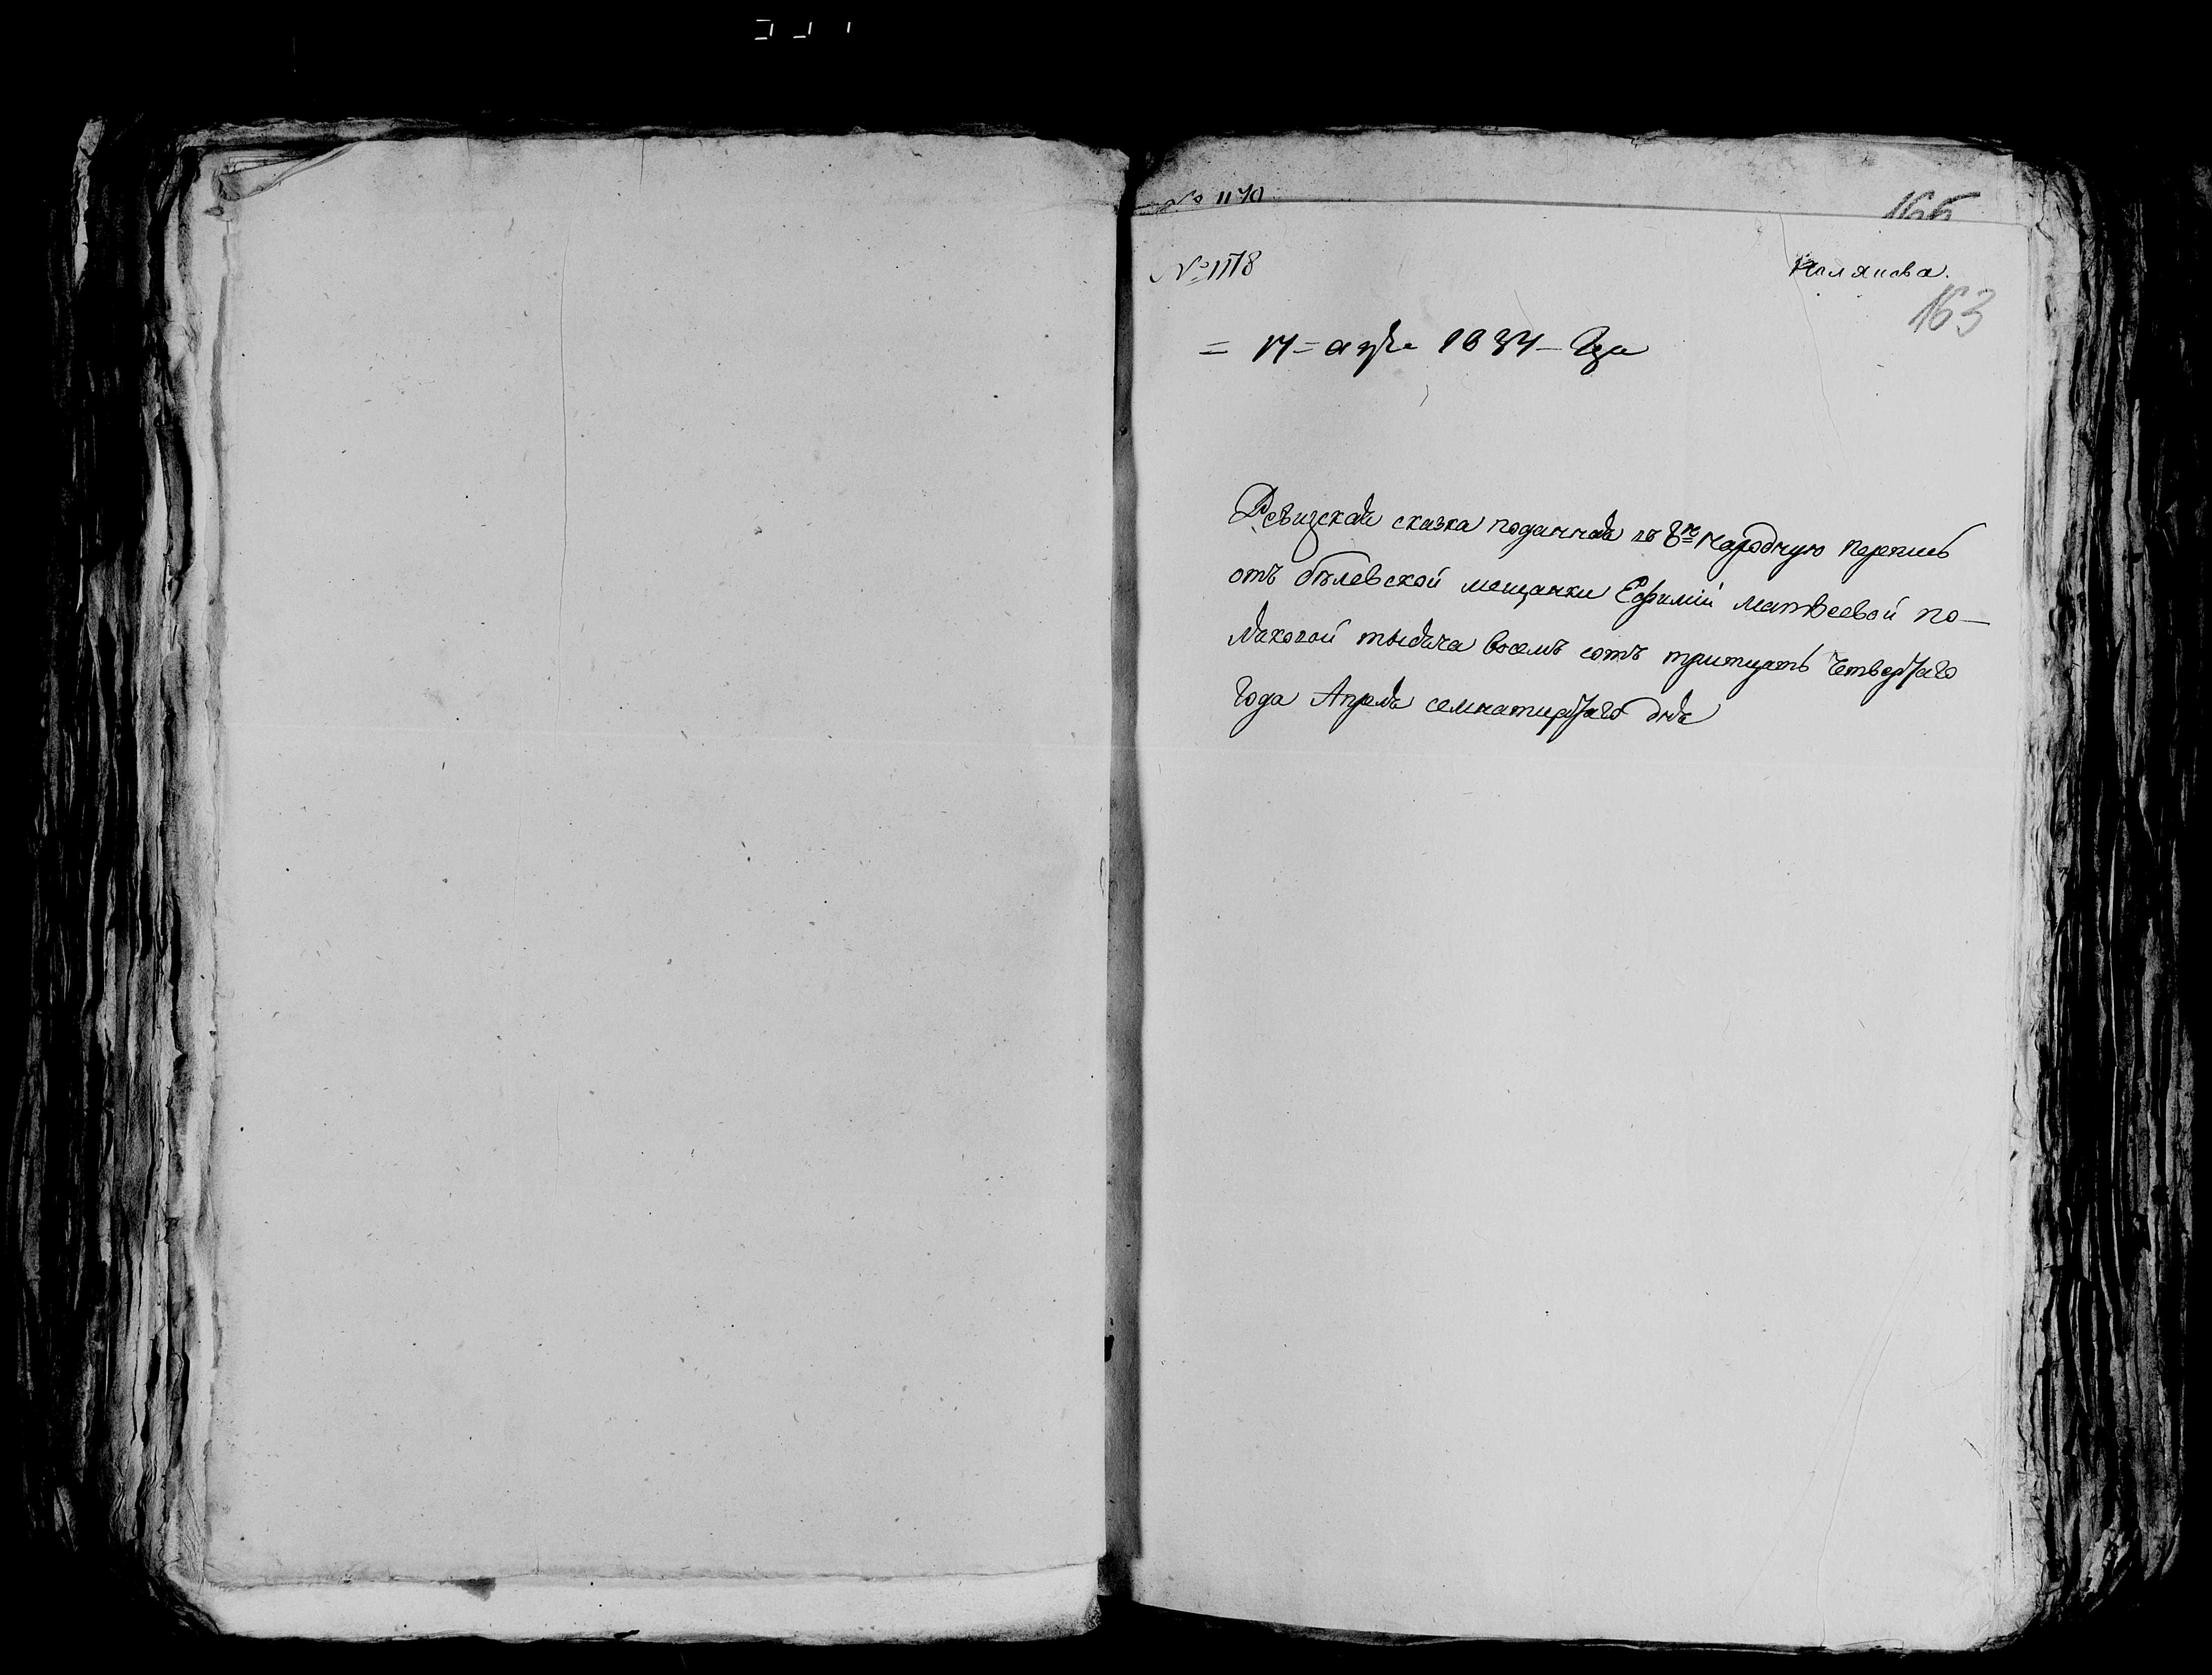 № 1170
166
№ 1178
Полякова.
163
= 17 = апре 1834 – Года
Ревизская сказка поданная въ 8ю народную перепись
отъ бѣлевской мещанки Ефимии Матвеевой по-
ляковой тысяча восемь сотъ тритцать четвертаго
года Апреля семнатцатаго дня